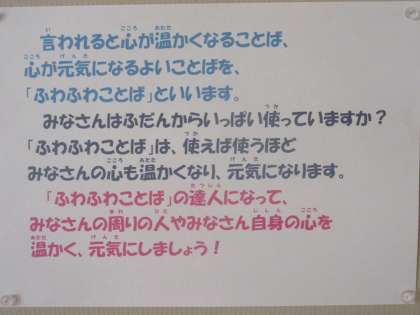 言われると心が温かくなることば、
心が元気になるよいことばを、
「ふわふわことば」といいます。
みなさんはふだんからいっぱい使っていますか？
「ふわふわことば」は、使えば使うほど
みなさんの心も温かくなり、元気になります。
「ふわふわことば」の達人になって、
みなさんの周りの人やみなさん自身の心を
温かく、元気にしましょう！